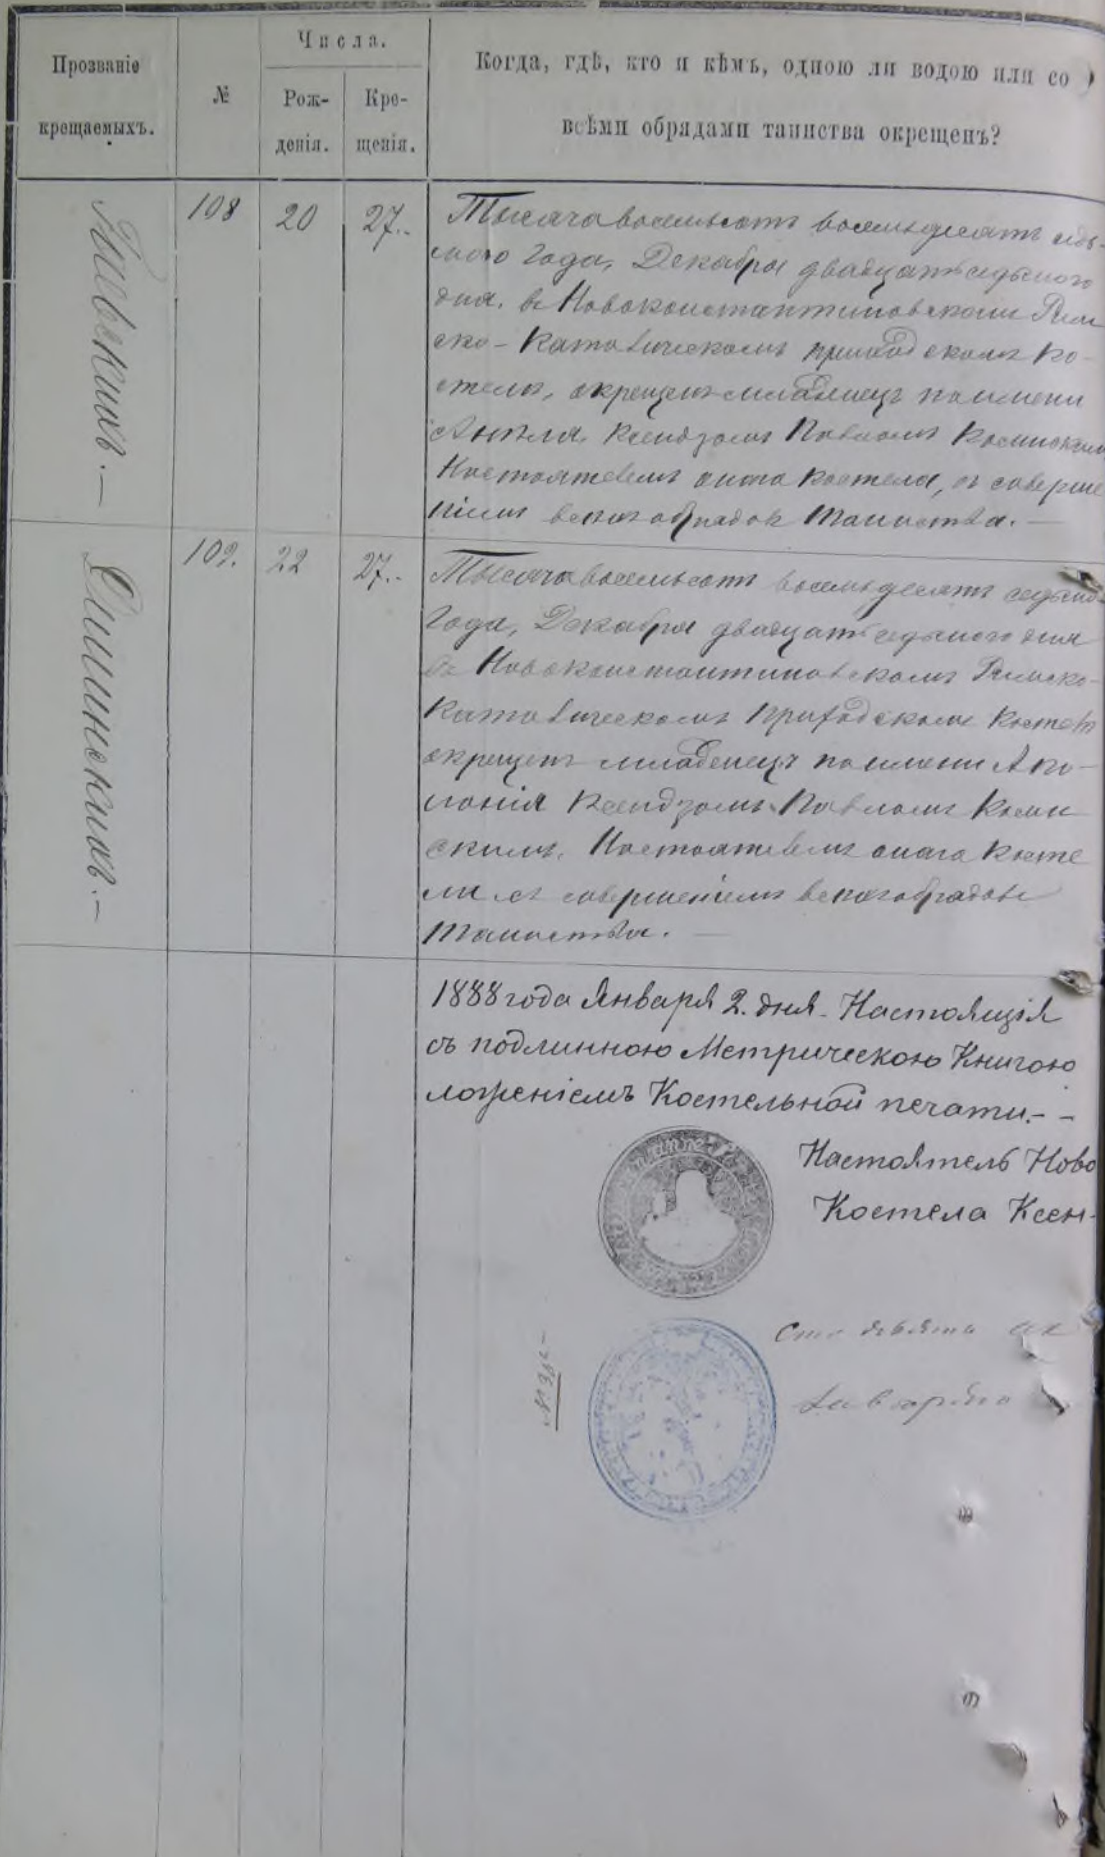 Прозваніе
крещаемыхъ.
№
Числа.
Рож-
денія.
Кре-
щенія.
Когда, гдѣ, кто и кѣмъ, одною ли водою или со
всѣми обрядами таинства окрещенъ?
108
20
27.
Тысяча восемьсотъ восемьдесятъ седь-
мого Года, Декабря двадцать седьмого
дня. въ Новоконстантиновскомъ Рим
ско-Католическомъ приходскомъ Ко-
стелѣ, окрещенъ младенецъ по имени
Анѣля. Ксендзомъ Павломъ
Настоятелемъ онаго Костела, съ соверше
ніемъ всѣхъ обрядовъ Таинства. —
Дилинскихъ. —
109.
22
27.
Тысяча восемьсотъ восемьдесятъ седьмо-
Года, Декабря двадцать седьмого дня
въ Новоконстантиновскомъ Римско-
Католическомъ Приходскомъ Костел
окрещенъ младенецъ по имени Апо-
лонія Ксендзомъ Павломъ
скимъ. Настоятелемъ онаго Косте
ла съ совершеніемъ всѣхъ обрядовъ
Таинства. —
1888 года Января 2. дня. Настоящія
съ подлинною Метрическою Книгою
ложеніемъ Костельной печати. - -
Настоятель Ново
Костела Ксен-
Сто девять